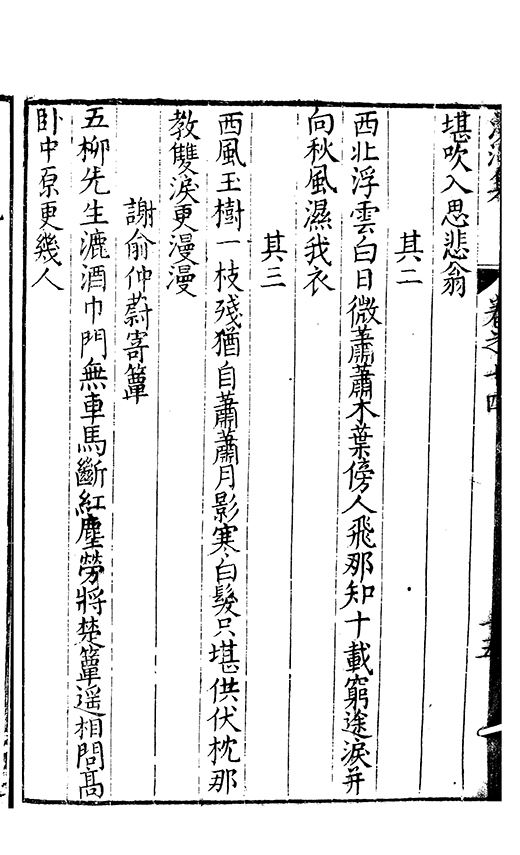 堪吹入思悲翁
其二
西北浮雲白日微蕭蕭木葉傍人飛那知十載窮途淚并
向秋風濕我衣
其三
西風玉樹一枝殘猶自蕭蕭月影寒白髮只堪供伏枕那
教雙淚更漫漫
謝俞仲蔚寄簟
五柳先生漉酒巾門無車馬斷紅塵勞將楚簟遥相問高
卧中原更幾人